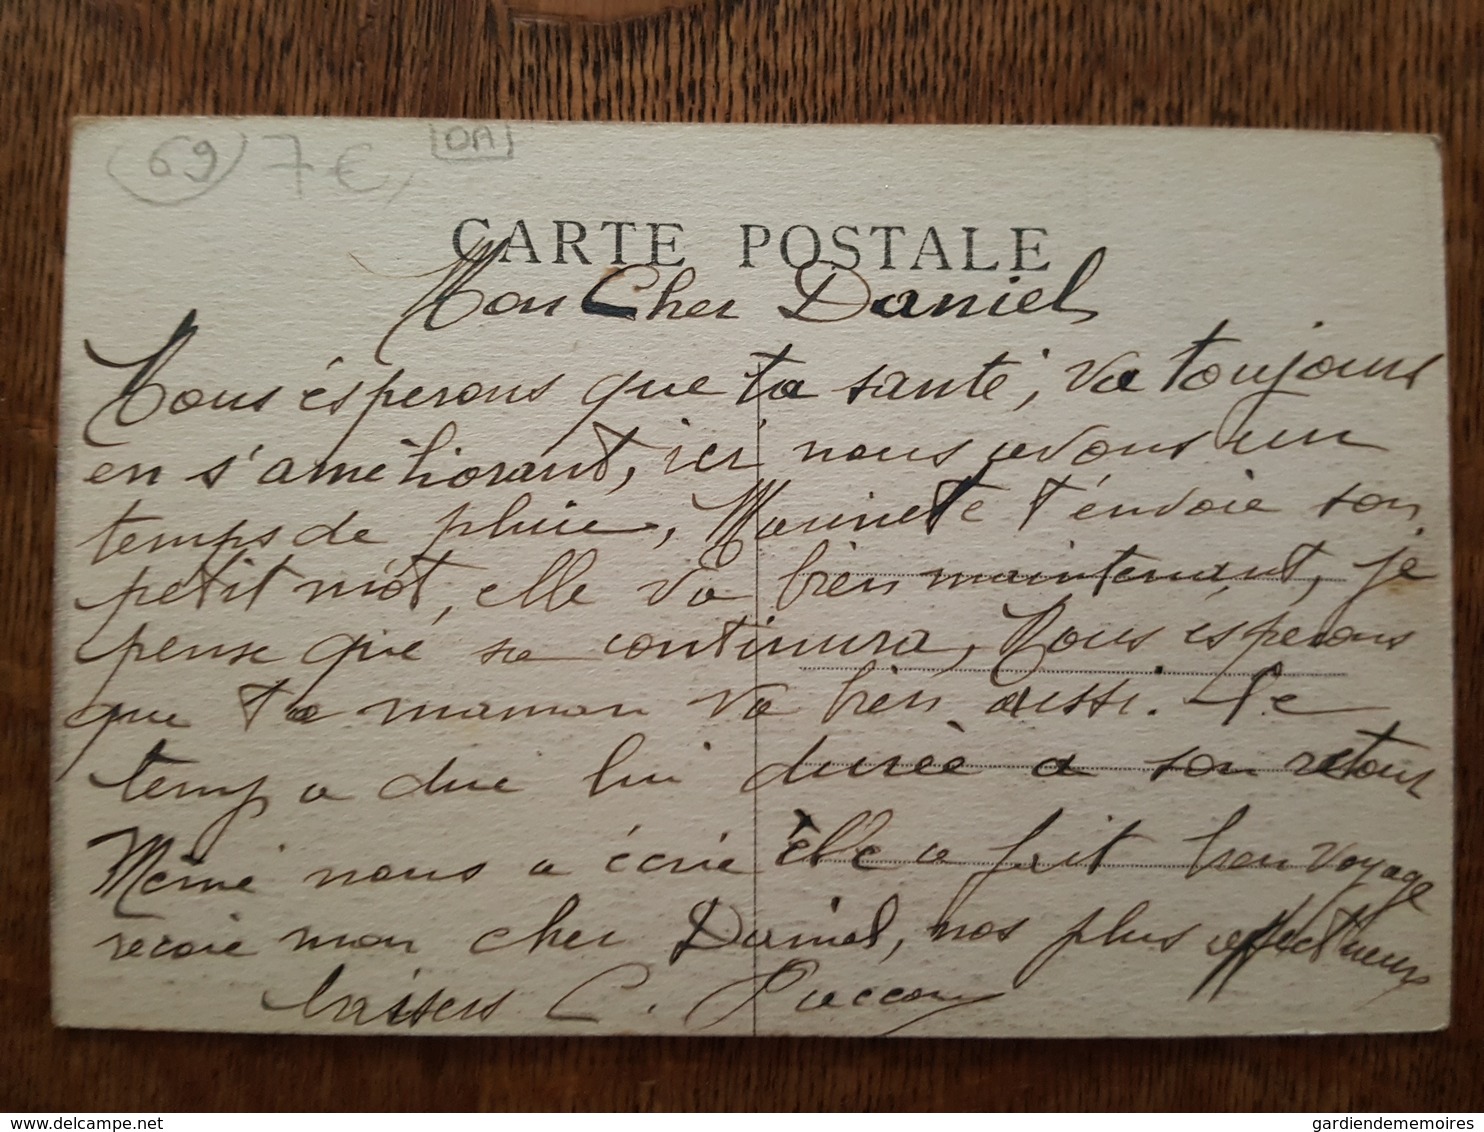 69 7€ DA
CARTE POSTALE
Mon Cher Daniel
Nous ésperons que ta santé, va toujours
en s'améliorant, ici nous avons un
temps de pluie, Marinette t'envoie son
petit mot, elle va bien maintenant, je
pense qué sa continura, Nous ésperons
que ta maman va bien aussi. Le
temp a due lui durée a son retour
Mémé nous a écrie elle a fait bon voyage
recoie mon cher Daniel, nos plus affectueux
baisers C.
gardiendememoires